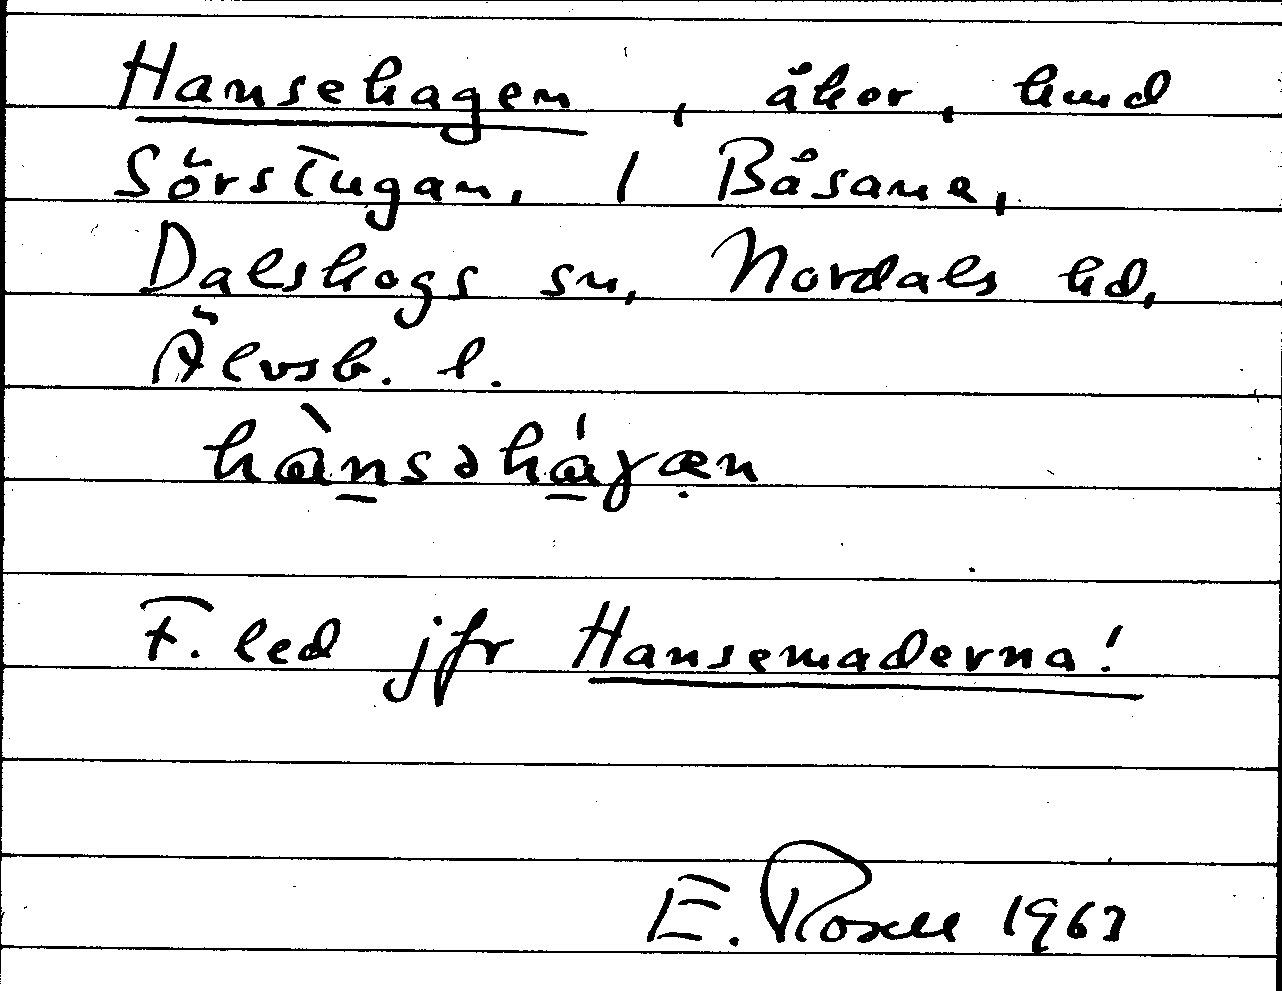 Hansehagen, åker, hmd
Sörstugan, 1 Båsane,
Dalskogs sn, Nordals hd,
Älvsb. l.
hànsəhágæn
F. led jfr Hansemaderna!
E. Roxell 1963